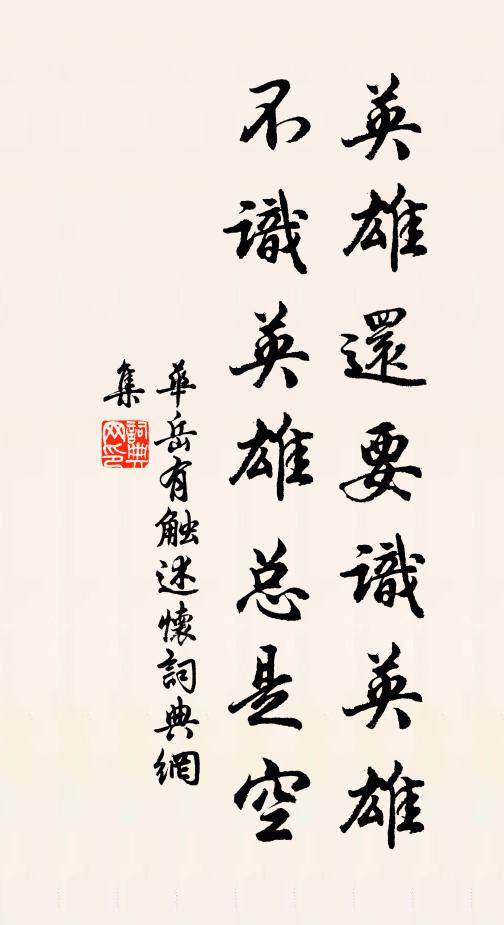 英雄還要識英雄
不識英雄总是空
華岳有触述懷詞典網
集
詞典
网印